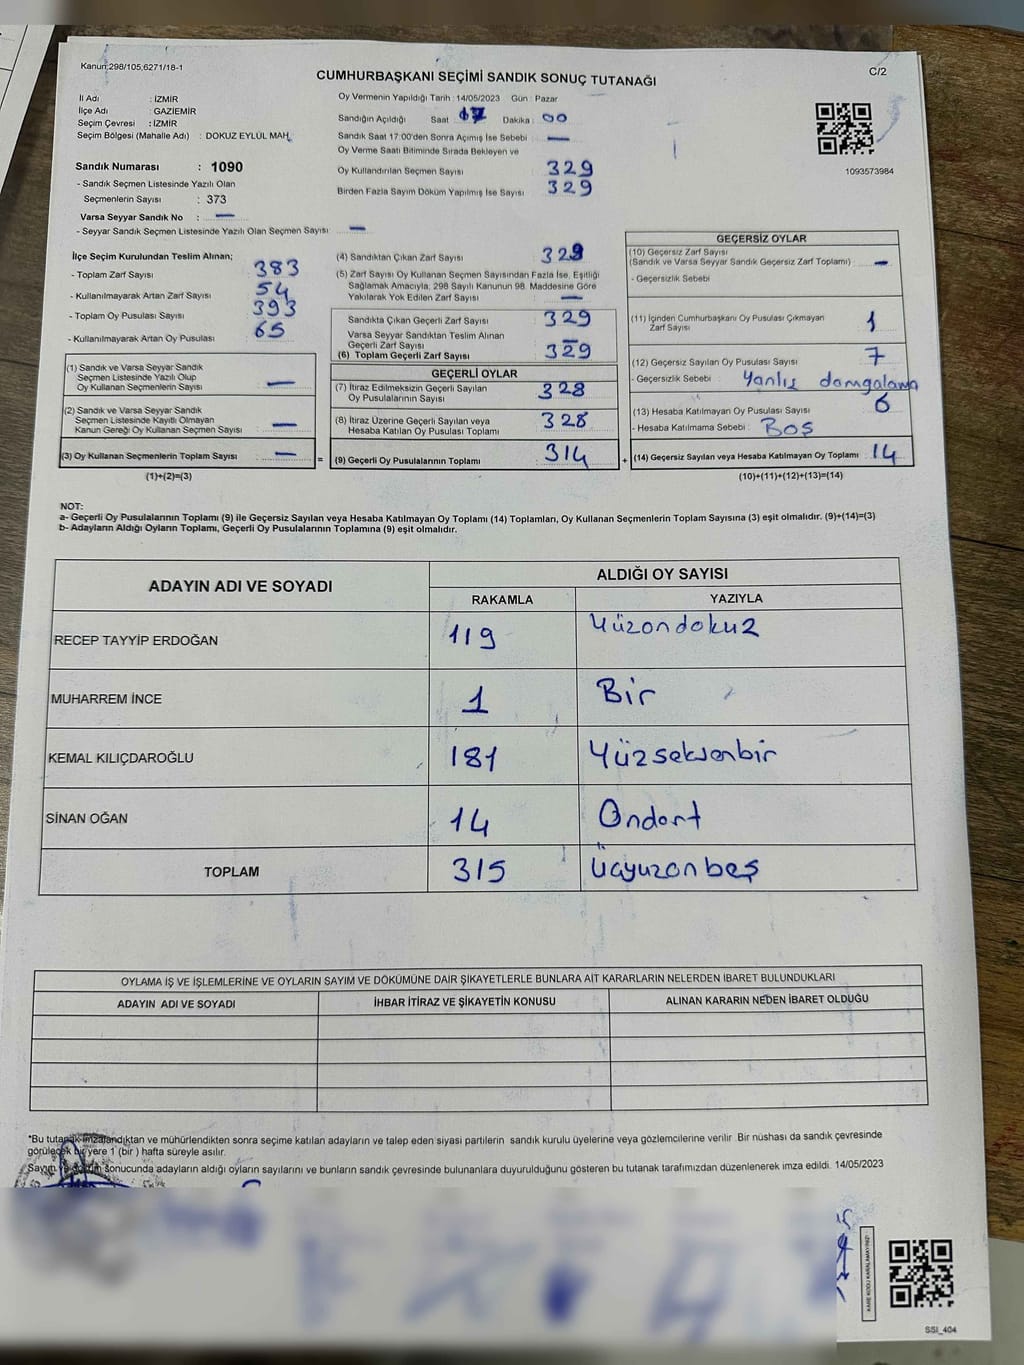 Kanun:298/105,6271/18-1
CUMHURBAŞKANI SEÇİMİ SANDIK SONUÇ TUTANAĞI
C/2
İl Adı : İZMİR
İlçe Adı : GAZİEMİR
Seçim Çevresi : İZMİR
Seçim Bölgesi (Mahalle Adı) : DOKUZ EYLÜL MAH.
Oy Vermenin Yapıldığı Tarih : 14/05/2023 Gün : Pazar
Sandığın Açıldığı Saat 17 Dakika : 00
Sandık Saat 17:00'den Sonra Açımış İse Sebebi —
Oy Verme Saati Bitiminde Sırada Bekleyen ve
Oy Kullandırılan Seçmen Sayısı 329
Birden Fazla Sayım Döküm Yapılmış İse Sayısı 329
1093573984
Sandık Numarası : 1090
- Sandık Seçmen Listesinde Yazılı Olan
Seçmenlerin Sayısı : 373
Varsa Seyyar Sandık No : —
- Seyyar Sandık Seçmen Listesinde Yazılı Olan Seçmen Sayısı : —
İlçe Seçim Kurulundan Teslim Alınan;
- Toplam Zarf Sayısı 383
- Kullanılmayarak Artan Zarf Sayısı 54
- Toplam Oy Pusulası Sayısı 393
- Kullanılmayarak Artan Oy Pusulası 65
(1) Sandık ve Varsa Seyyar Sandık
Seçmen Listesinde Yazılı Olup
Oy Kullanan Seçmenlerin Sayısı —
(2) Sandık ve Varsa Seyyar Sandık
Seçmen Listesinde Kayıtlı Olmayan
Kanun Gereği Oy Kullanan Seçmen Sayısı —
(3) Oy Kullanan Seçmenlerin Toplam Sayısı —
(1)+(2)=(3)
=
(4) Sandıktan Çıkan Zarf Sayısı 329
(5) Zarf Sayısı Oy Kullanan Seçmen Sayısından Fazla İse, Eşitliği
Sağlamak Amacıyla, 298 Sayılı Kanunun 98. Maddesine Göre
Yakılarak Yok Edilen Zarf Sayısı —
Sandıkta Çıkan Geçerli Zarf Sayısı 329
Varsa Seyyar Sandıktan Teslim Alınan
Geçerli Zarf Sayısı —
(6) Toplam Geçerli Zarf Sayısı 329
GEÇERLİ OYLAR
(7) İtiraz Edilmeksizin Geçerli Sayılan
Oy Pusulalarının Sayısı 328
(8) İtiraz Üzerine Geçerli Sayılan veya
Hesaba Katılan Oy Pusulası Toplamı 328
(9) Geçerli Oy Pusulalarının Toplamı 314
+
GEÇERSİZ OYLAR
(10) Geçersiz Zarf Sayısı
(Sandık ve Varsa Seyyar Sandık Geçersiz Zarf Toplamı) —
- Geçersizlik Sebebi :
(11) İçinden Cumhurbaşkanı Oy Pusulası Çıkmayan
Zarf Sayısı 1
(12) Geçersiz Sayılan Oy Pusulası Sayısı 7
- Geçersizlik Sebebi : Yanlış damgalama
(13) Hesaba Katılmayan Oy Pusulası Sayısı 6
- Hesaba Katılmama Sebebi : BOŞ
(14) Geçersiz Sayılan veya Hesaba Katılmayan Oy Toplamı 14
(10)+(11)+(12)+(13)=(14)
NOT:
a- Geçerli Oy Pusulalarının Toplamı (9) ile Geçersiz Sayılan veya Hesaba Katılmayan Oy Toplamı (14) Toplamları, Oy Kullanan Seçmenlerin Toplam Sayısına (3) eşit olmalıdır. (9)+(14)=(3)
b- Adayların Aldığı Oyların Toplamı, Geçerli Oy Pusulalarının Toplamına (9) eşit olmalıdır.
ADAYIN ADI VE SOYADI
ALDIĞI OY SAYISI
RAKAMLA YAZIYLA
RECEP TAYYİP ERDOĞAN 119 Yüzondokuz
MUHARREM İNCE 1 Bir
KEMAL KILIÇDAROĞLU 181 Yüzseksenbir
SİNAN OĞAN 14 Ondört
TOPLAM 315 Üçyüzonbeş
OYLAMA İŞ VE İŞLEMLERİNE VE OYLARIN SAYIM VE DÖKÜMÜNE DAİR ŞİKAYETLERLE BUNLARA AİT KARARLARIN NELERDEN İBARET BULUNDUKLARI
ADAYIN ADI VE SOYADI İHBAR İTİRAZ VE ŞİKAYETİN KONUSU ALINAN KARARIN NEDEN İBARET OLDUĞU
*Bu tutanak imzalandıktan ve mühürlendikten sonra seçime katılan adayların ve talep eden siyasi partilerin sandık kurulu üyelerine veya gözlemcilerine verilir Bir nüshası da sandık çevresinde
görülecek bir yere 1 (bir ) hafta süreyle asılır.
Sayım ve döküm sonucunda adayların aldığı oyların sayılarını ve bunların sandık çevresinde bulunanlara duyurulduğunu gösteren bu tutanak tarafımızdan düzenlenerek imza edildi. 14/05/2023
KARE KODU KARALAMAYINIZ!
SSI_404